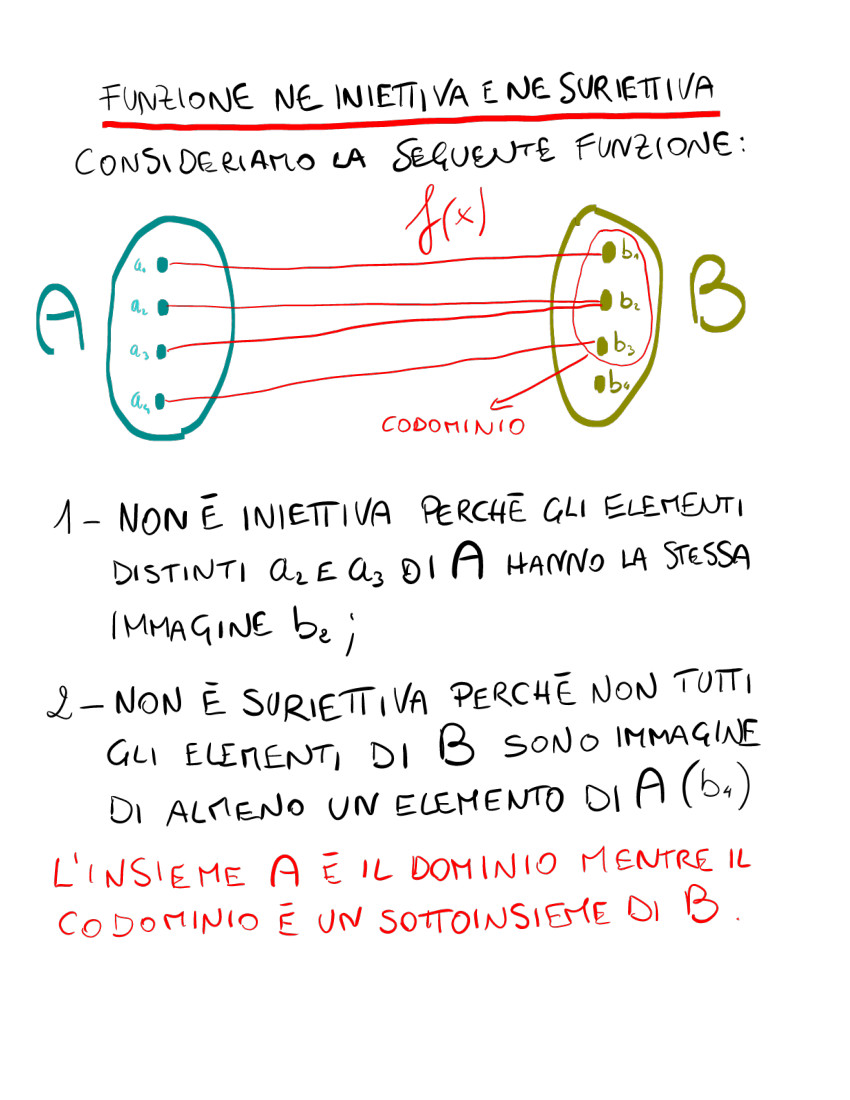 FUNZIONE NE INIETTIVA E NE SURIETTIVA
CONSIDERIAMO LA SEGUENTE FUNZIONE:
f(x)
A
a₁
a₂
a₃
a₄
b₁
b₂
b₃
b₄
B
CODOMINIO
1- NON Ē INIETTIVA PERCHĒ GLI ELEMENTI
DISTINTI a₂ E a₃ DI A HANNO LA STESSA
IMMAGINE b₂;
2- NON Ē SURIETTIVA PERCHĒ NON TUTTI
GLI ELEMENTI DI B SONO IMMAGINE
DI ALMENO UN ELEMENTO DI A (b₄)
L'INSIEME A Ē IL DOMINIO MENTRE IL
CODOMINIO Ē UN SOTTOINSIEME DI B.